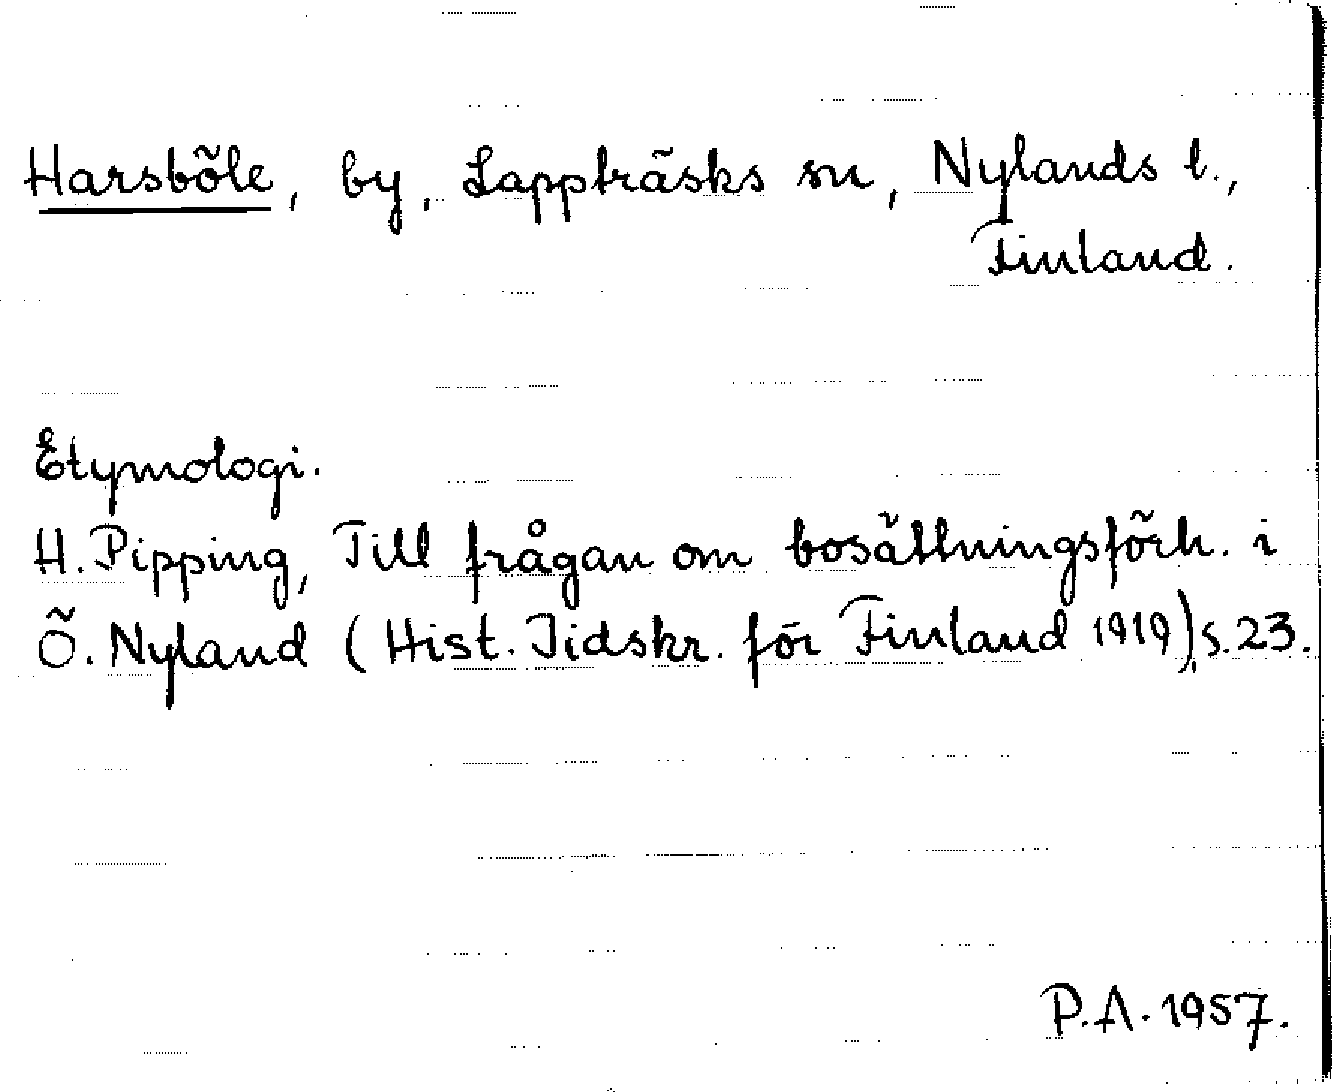 Harsböle, by, Lappträsks sn, Nylands l.,
Finland.
Etymologi.
H. Pipping, Till frågan om bosättningsförh. i
Ö. Nyland (Hist. Tidskr. för Finland 1919), s. 23.
P.A. 1957.